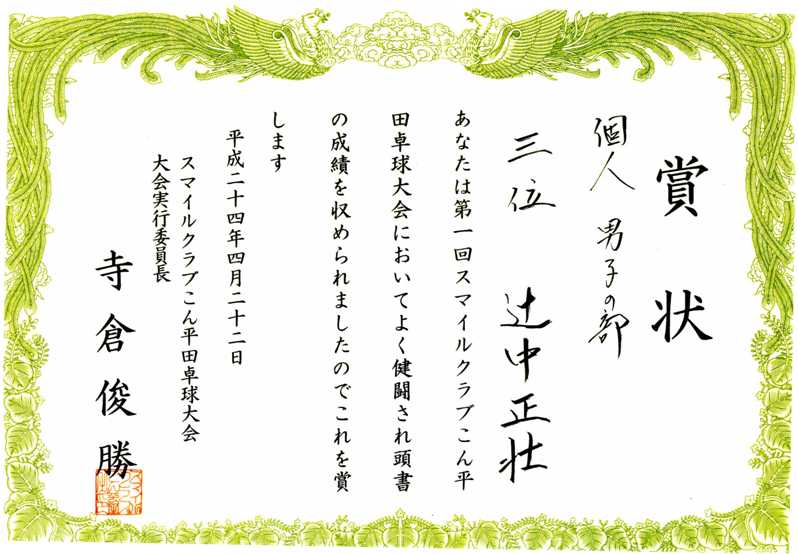 賞状
個人 男子の部
三位 辻中正壮
あなたは第一回スマイルクラブこん平
田卓球大会においてよく健闘され頭書
の成績を収められましたのでこれを賞
します
平成二十四年四月二十二日
スマイルクラブこん平田卓球大会
大会実行委員長
寺倉俊勝